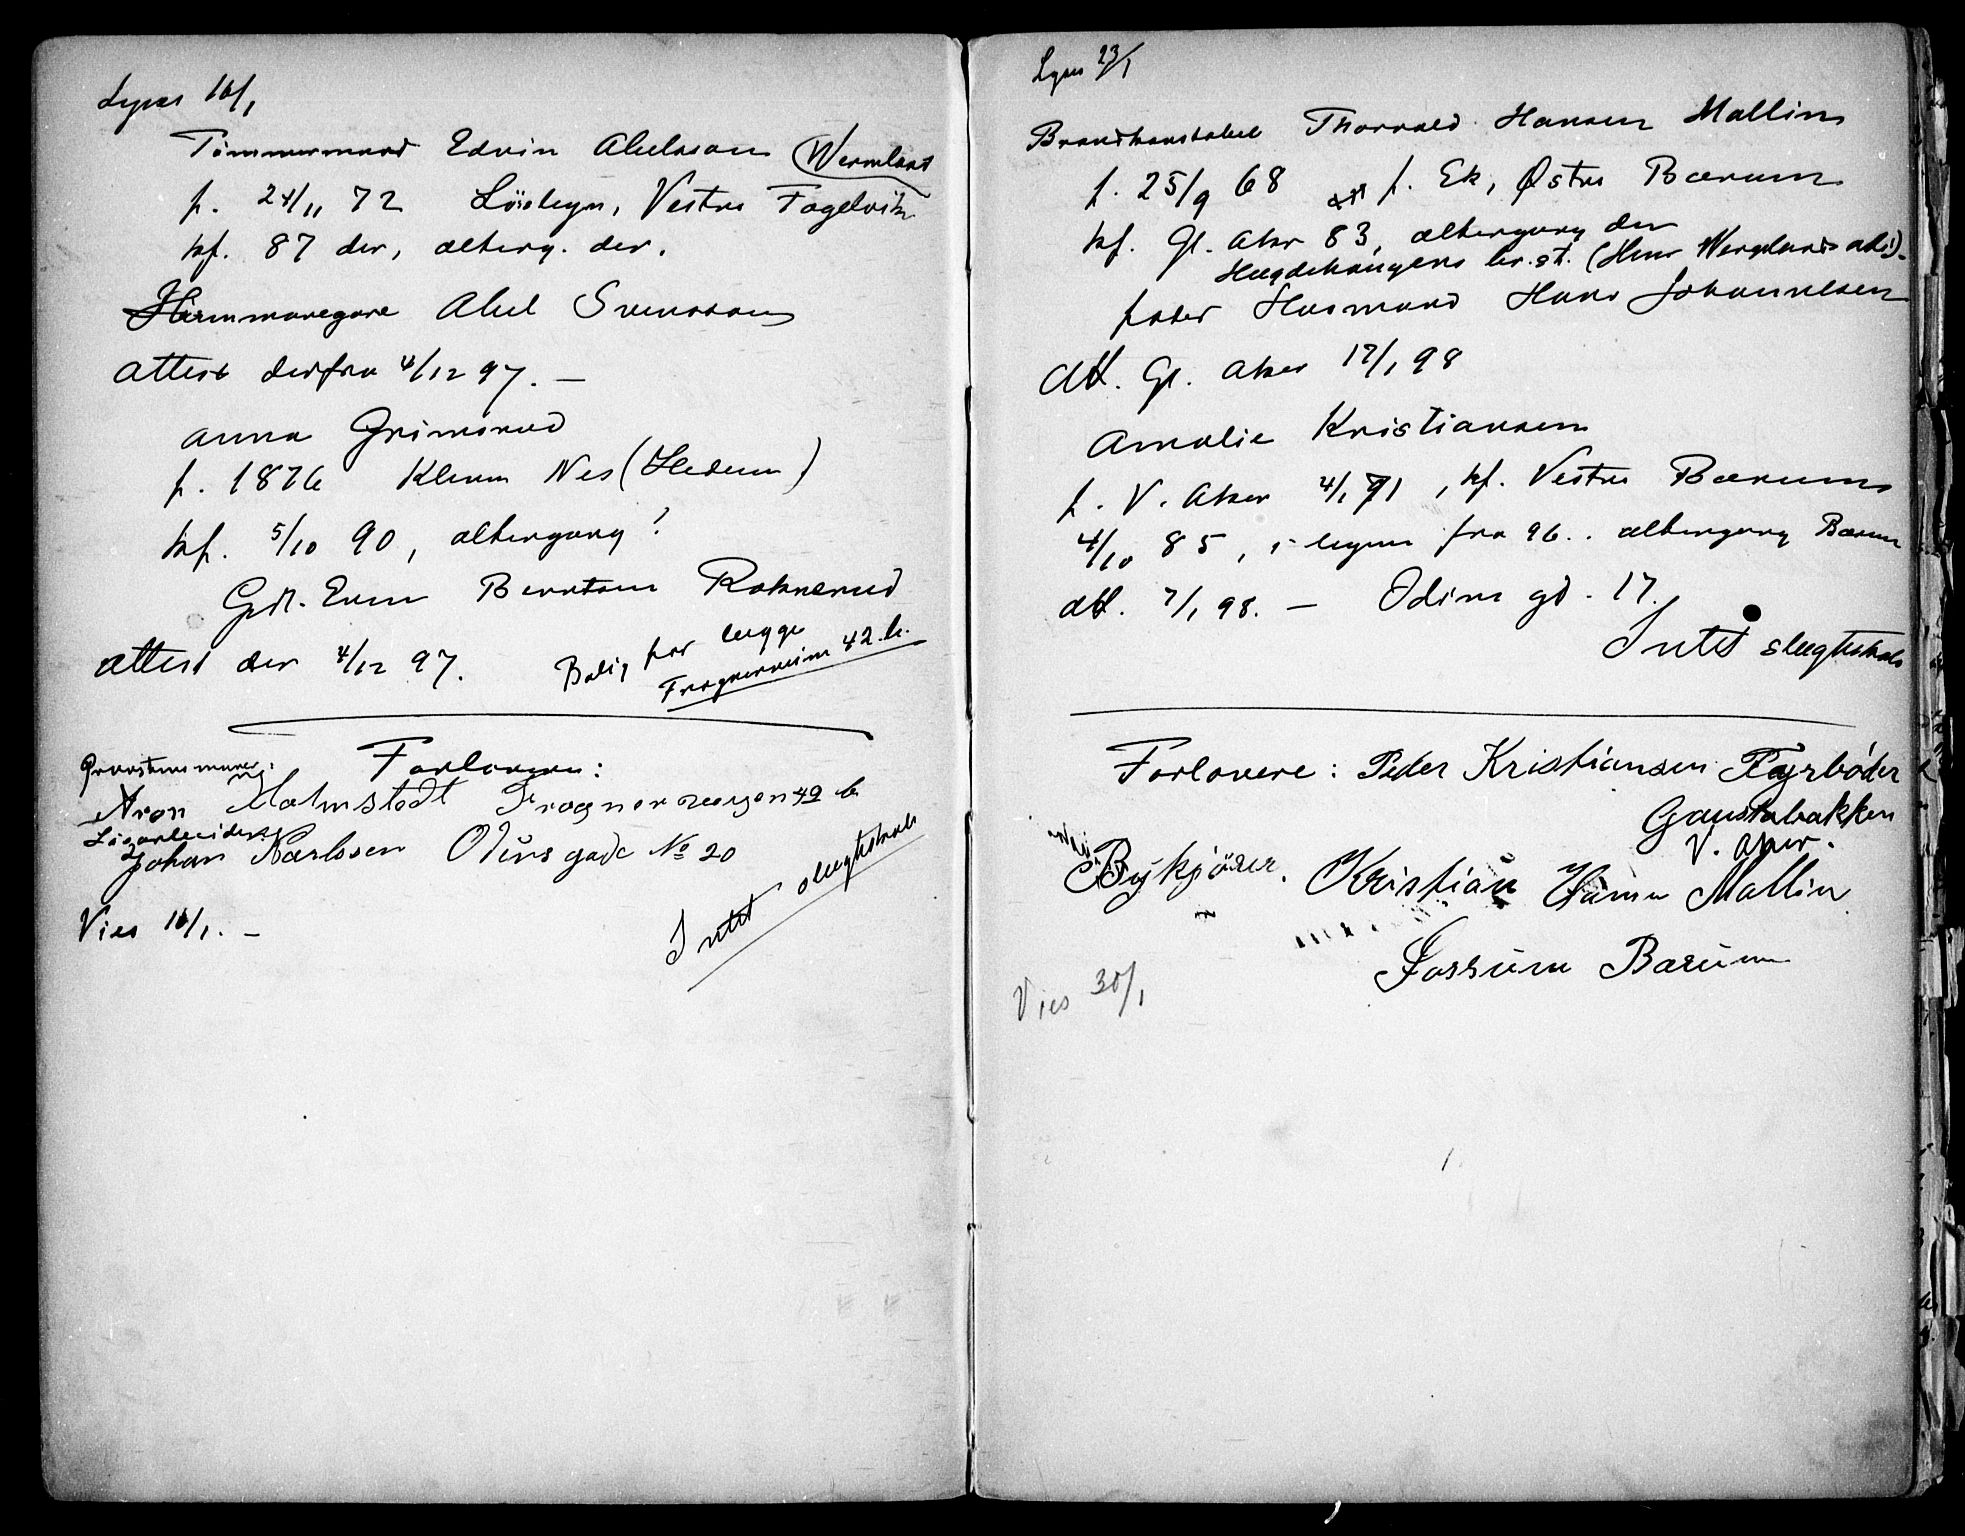 Lyses 16/1
Tömmermand Edvin Axelsson (Wermland
f. 24/11 72 Vestra Fogelvik
kf. 87 der, alterg. der.
Hemmanegare Axel Svensson
Attest derfra 4/12 97. —
Anna Grimsrud
f. 1876 Nes (Hedem)
kf. 5/10 90, altergang?
Gdr. Even Berntsen
attest der 4/12 97. Bolig før begge
Frognerveien 42.b.
Forlovere:
Aron Malmstedt Frognerveigen 42 b
Johan Karlssen Odins gade No 20
Intet slegtskab
Vies 16/1. —
Lyses 23/1
Brandkonstabel Thorvald Hansen Mallin
f. 25/9 68 f. Ek, Østre Bærum
kf. Gl. Aker 83, altergang den
Hegdehaugens br.st.
fader Husmand Hans Johannesen
Att. Gl. Aker 17/1 98
Amalie Kristiansen
f. V. Aker 4/1 71, kf. Vestre Bærum
4/10 85, i byen fra 96.. altergang Bærum
att. 7/1 98. — Odins gd. 17.
Intet slegtskab
Forlovere: Peder Kristiansen Fyrbøder
Gaustabakken
V. Aker.
Bykjører. Kristian Hansen Mallin
Fossum Bærum
Vies 30/1